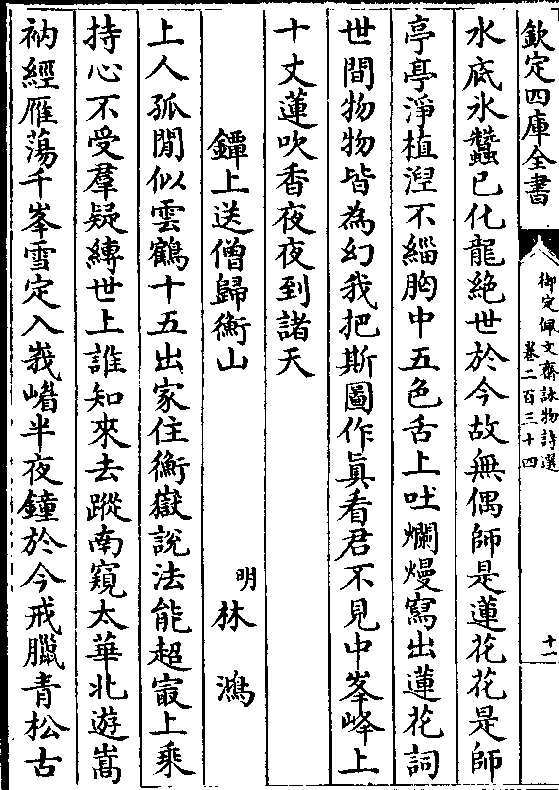 欽定四庫全書
御定佩文齋詠物詩選
卷二百三十四
十一
水底氷蠶已化龍絶世於今故無偶師是蓮花花是師
亭亭淨植湼不緇胸中五色舌上吐爛熳寫出蓮花詞
世間物物皆為幻我把斯圖作真看君不見中峯峰上
十丈蓮吹香夜夜到諸天
鐔上送僧歸衡山
明林鴻
上人孤閒似雲鶴十五出家住衡嶽說法能超㝡上乘
持心不受羣疑縛世上誰知來去蹤南窺太華北遊嵩
衲經雁蕩千峯雪定入峩嵋半夜鐘於今戒臘青松古